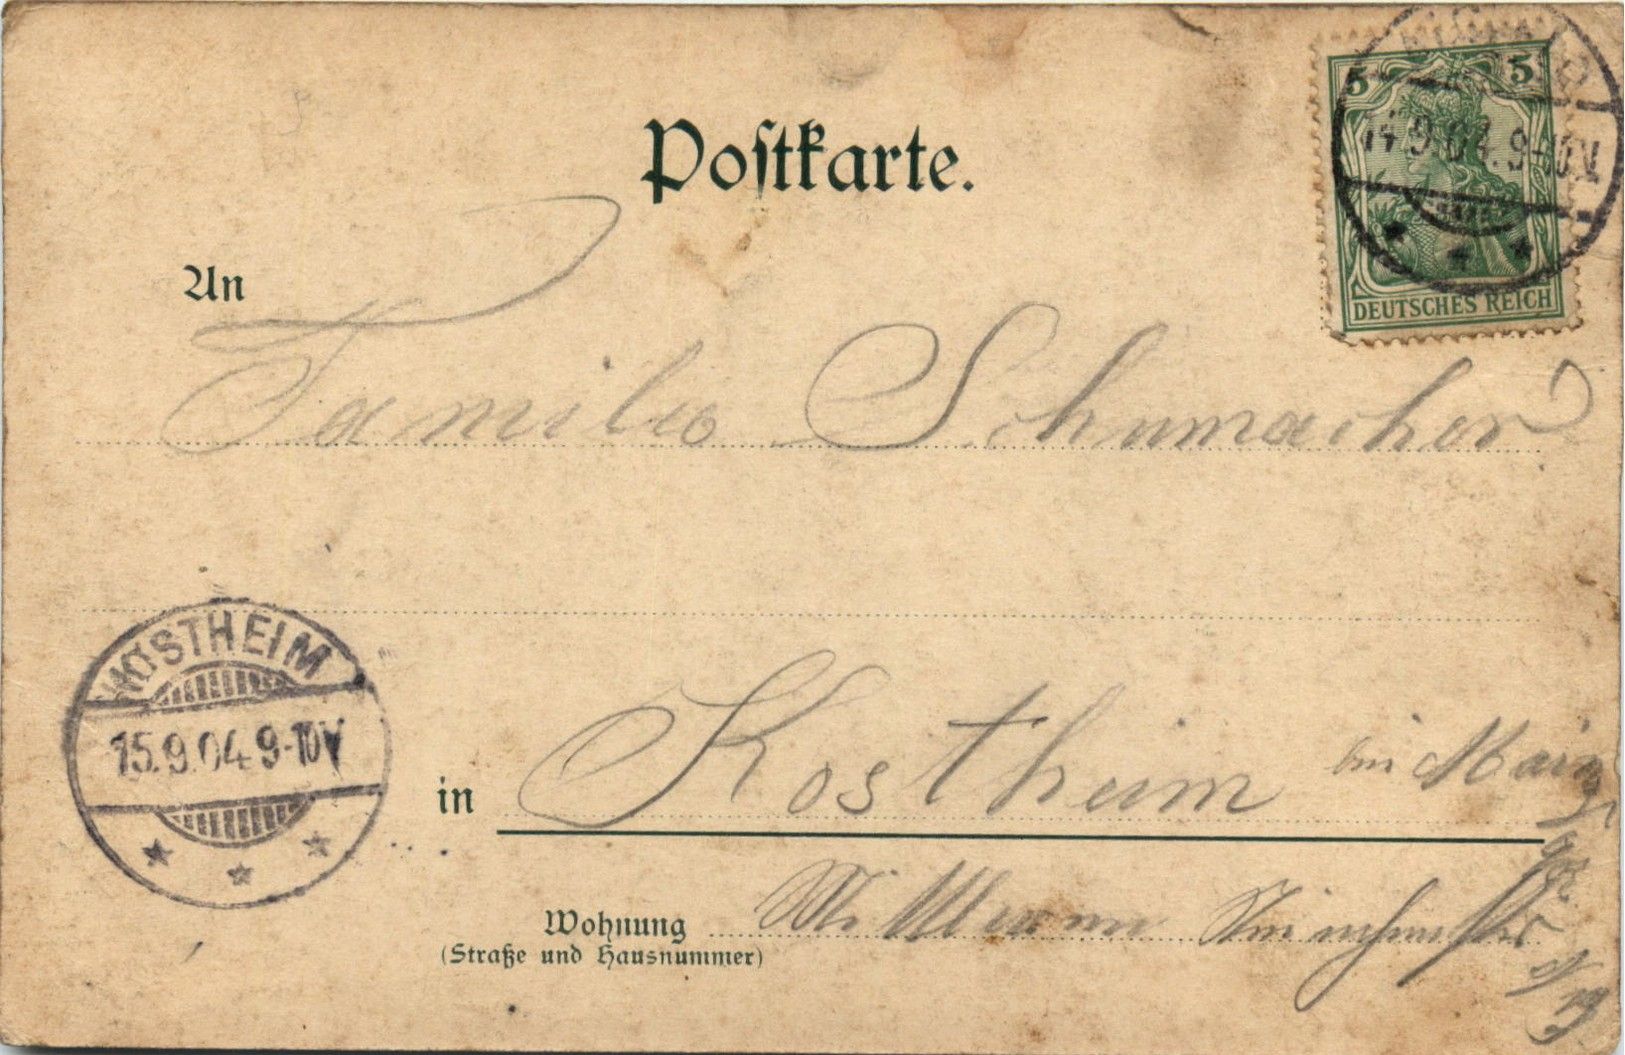 Postkarte.
5 5
14.9.04. 9-10V.
DEUTSCHES REICH
An
Familie Schumacher
KOSTHEIM
15.9.04 9-10V
in Kostheim bei Mainz
Wohnung
(Straße und Hausnummer)